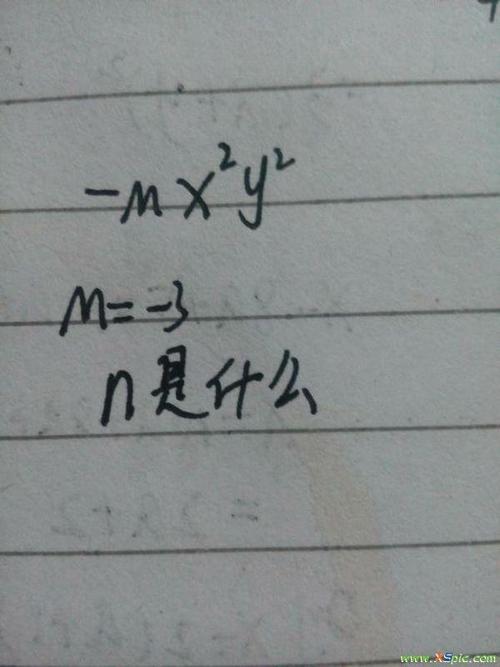 -mx²y²
m=-3
n是什么
www.XSpic.com